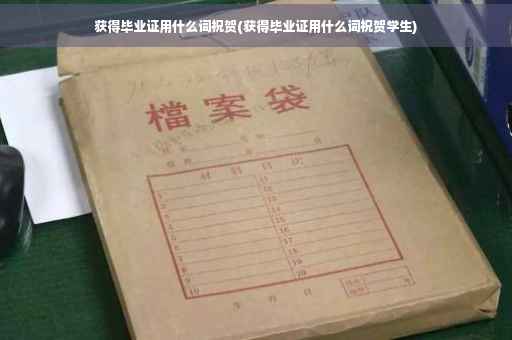 获得毕业证用什么词祝贺(获得毕业证用什么词祝贺学生)
檔案袋
材料目次
1 11
2 12
3 13
4 14
5 15
6 16
7 17
8 18
9 19
10 20
年 月 日